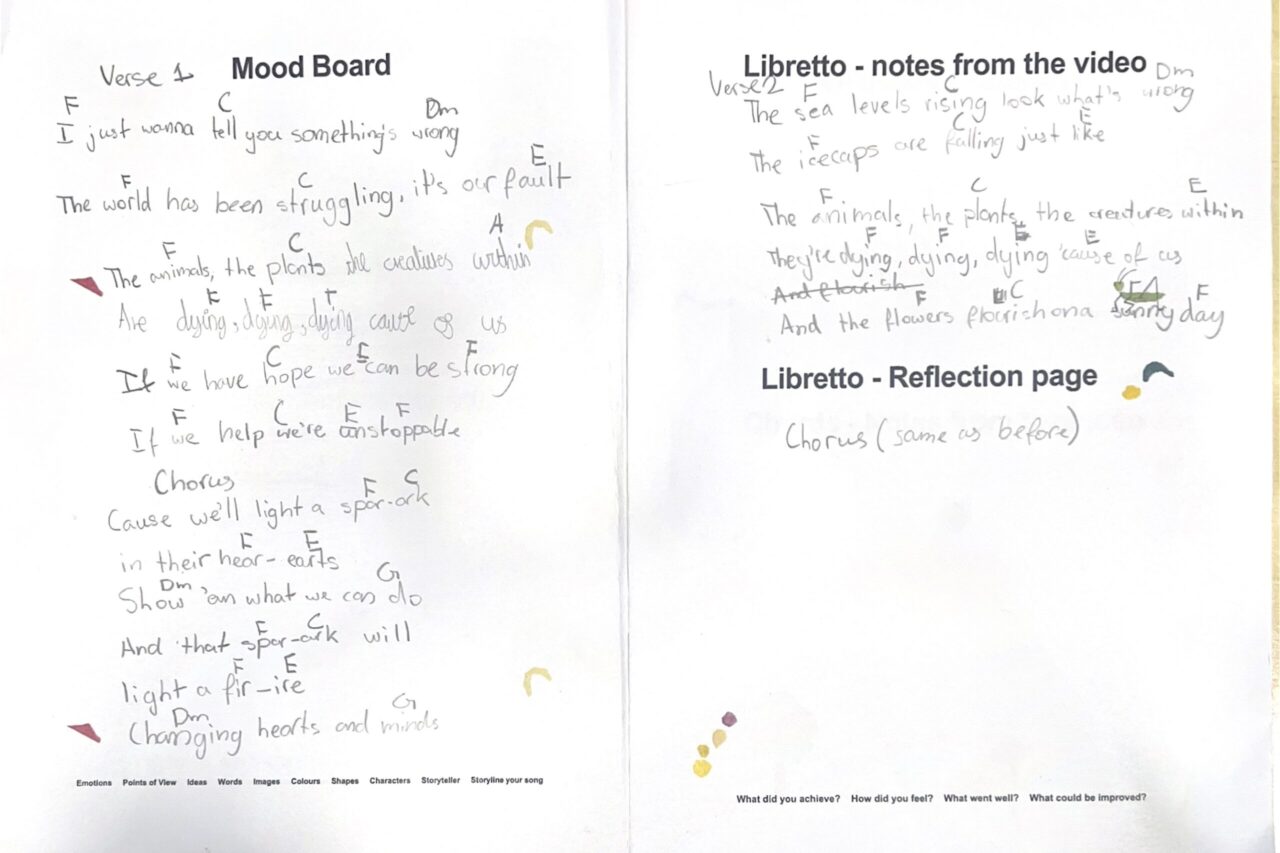 Verse 1 Mood Board
F C Dm
I just wanna tell you something's wrong
F C E
The world has been struggling, it's our fault
F C A
The animals, the plants the creatures within
F F F
Are dying, dying, dying cause of us
F C E F
If we have hope we can be strong
F C E F
If we help we're unstoppable
Chorus
F C
Cause we'll light a spar-ark
F E
in their hear-earts
Dm G
Show 'em what we can do
F C
And that spar-ark will
F E
light a fir-ire
Dm G
Changing hearts and minds
Emotions Points of View Ideas Words Images Colours Shapes Characters Storyteller Storyline your song
Libretto - notes from the video
Verse 2 F C Dm
The sea levels rising look what's wrong
F C E
The icecaps are falling just like
F C E
The animals, the plants, the creatures within
F F E
They're dying, dying, dying 'cause of us
And flourish
F C F
And the flowers flourish on a sunny day
Libretto - Reflection page
Chorus (same as before)
What did you achieve? How did you feel? What went well? What could be improved?